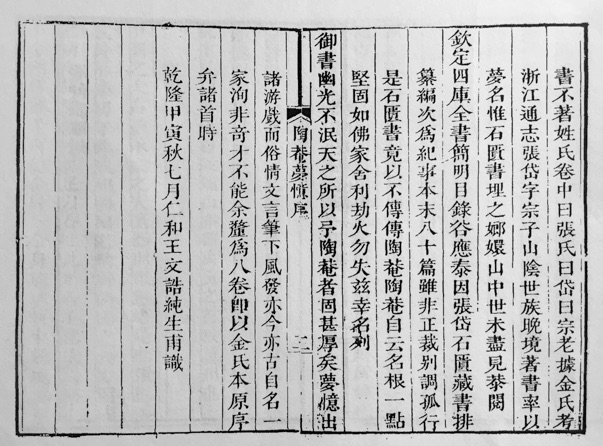 書不著姓氏卷中曰張氏曰岱曰宗老據金氏考
浙江通志張岱字宗子山陰世族晚境著書率以
夢名惟石匱書埋之嫏嬛山中世未盡見恭閱
欽定四庫全書簡明目錄谷應泰因張岱石匱藏書排
纂編次為紀事本末八十篇雖非正裁別調孤行
是石匱書竟以不傳傳陶菴陶菴自云名根一點
堅固如佛家舍利劫火勿失茲幸名列
御書幽光不泯天之所以予陶菴者固甚厚矣夢憶出
陶菴夢憶序
二
諸游戲而俗情文言筆下風發亦今亦古自名一
家洵非奇才不能余釐為八卷即以金氏本原序
弁諸首時
乾隆甲寅秋七月仁和王文誥純生甫識